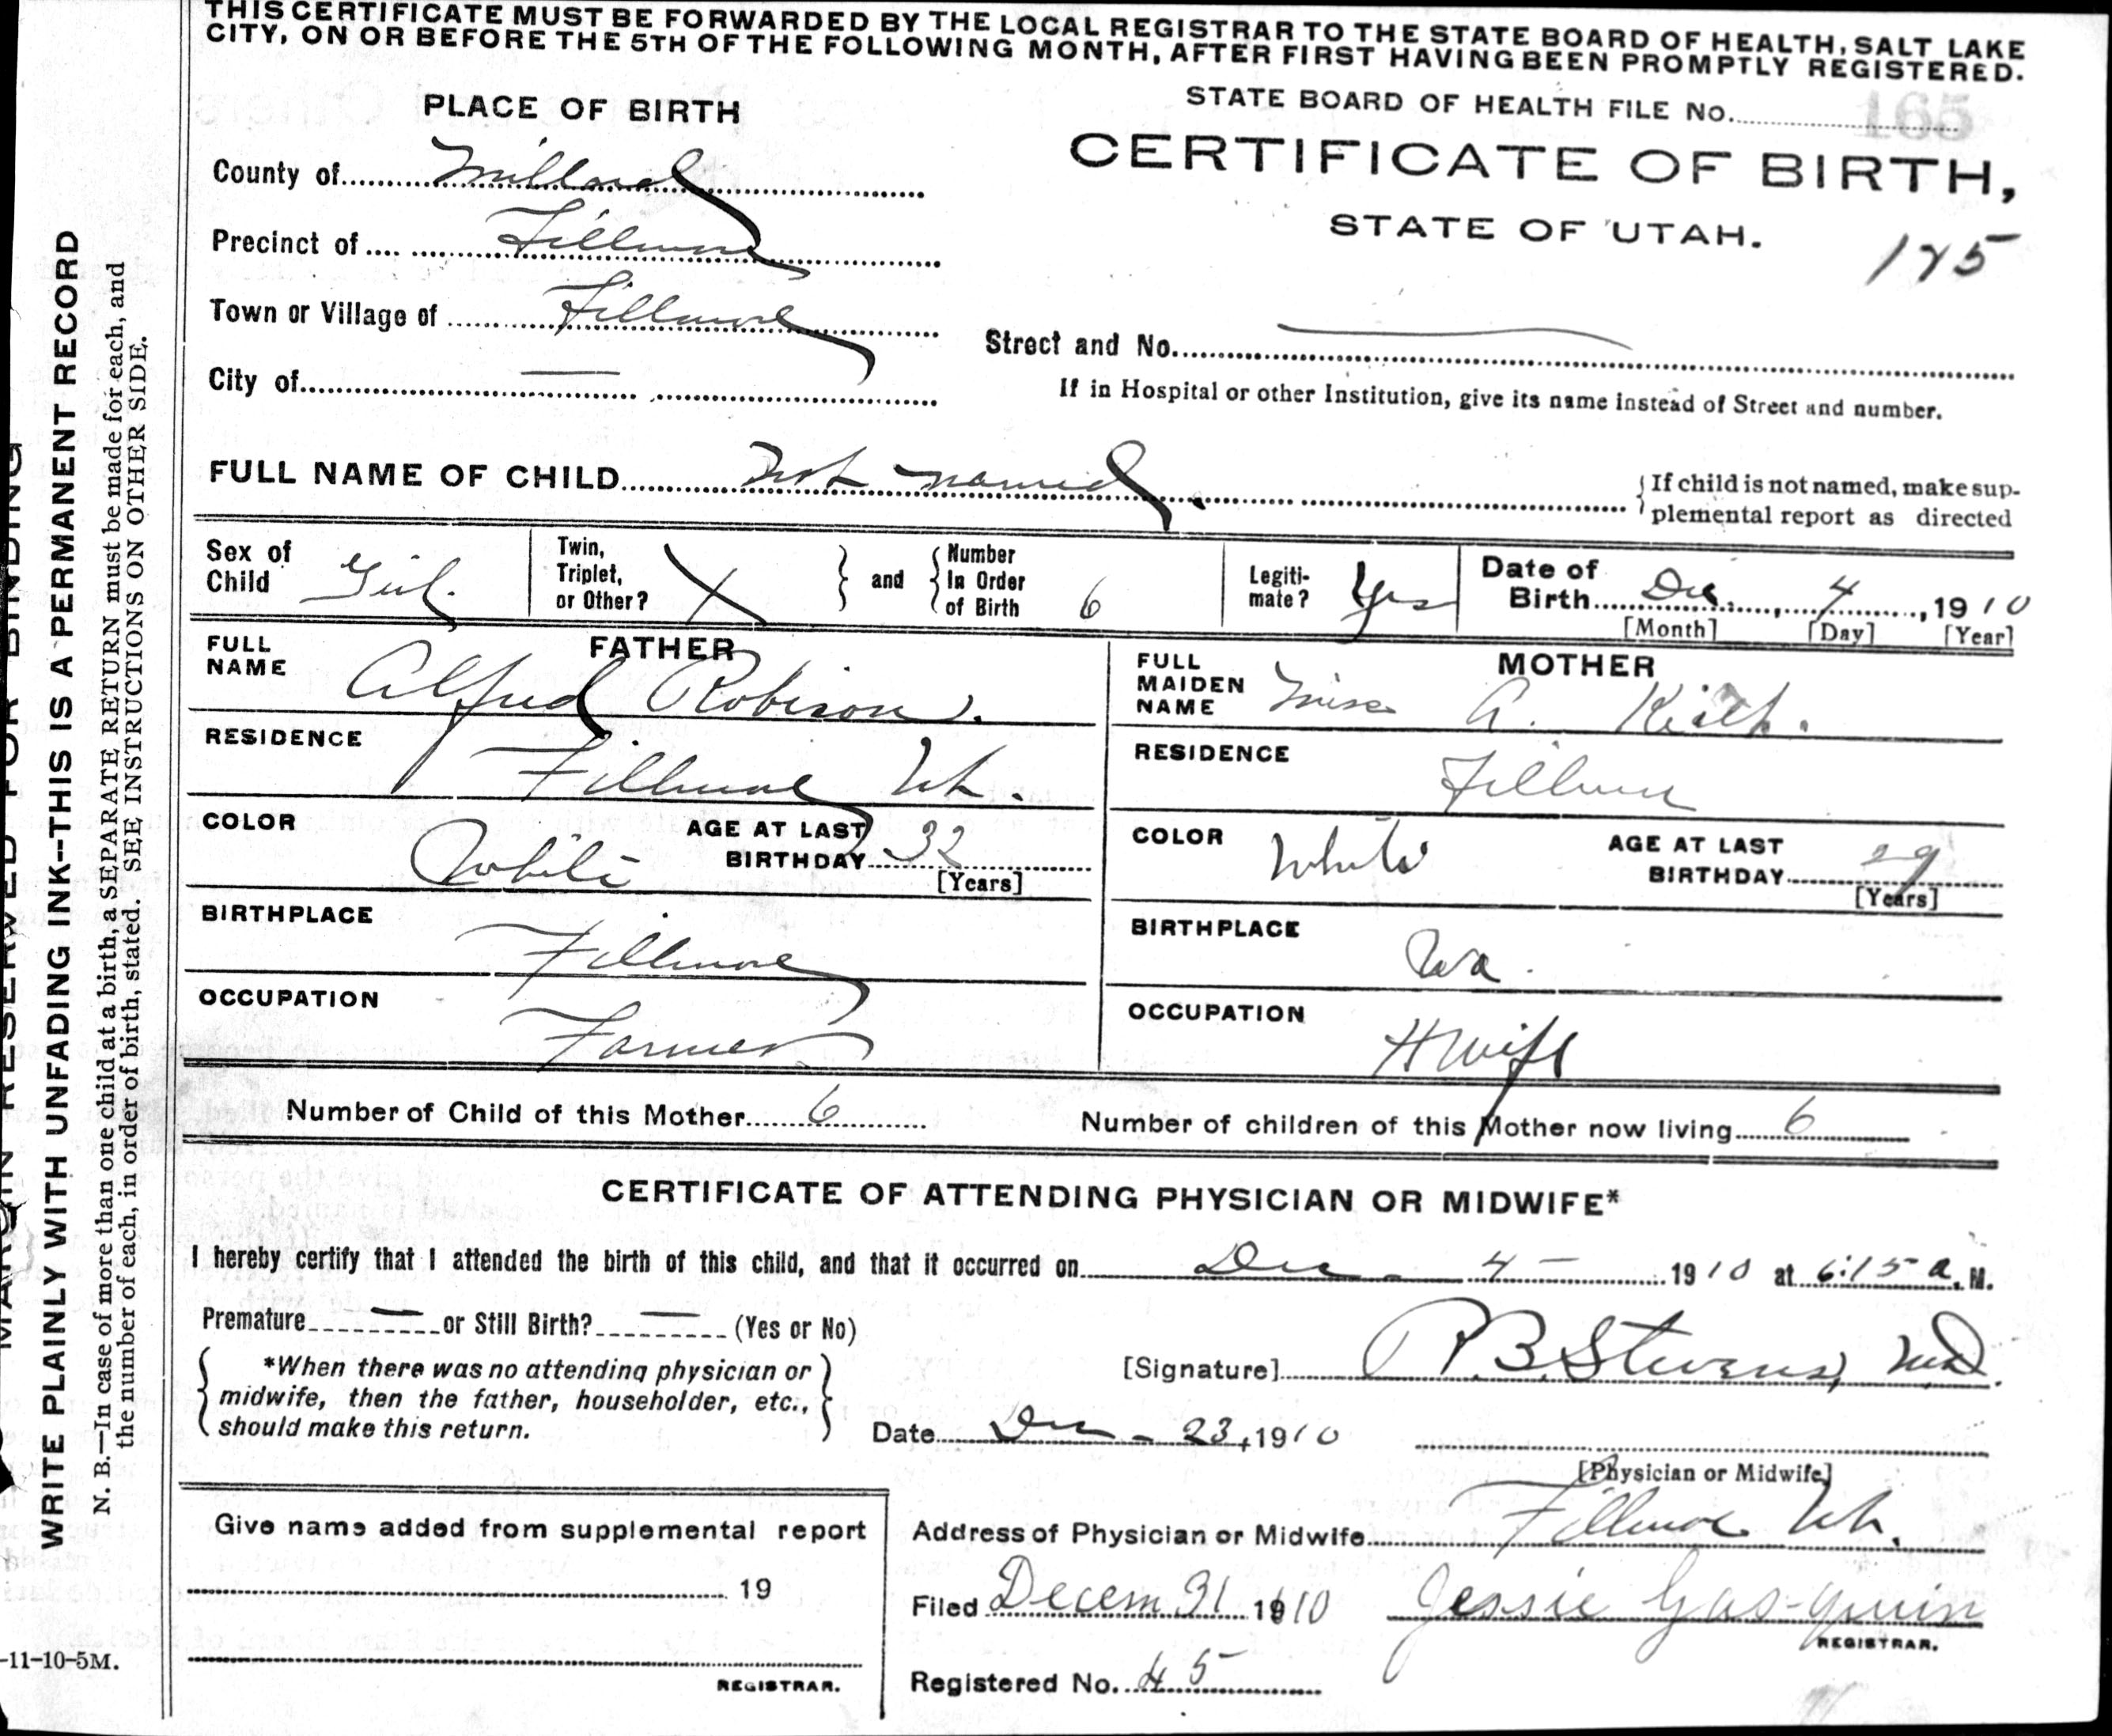 THIS CERTIFICATE MUST BE FORWARDED BY THE LOCAL REGISTRAR TO THE STATE BOARD OF HEALTH, SALT LAKE
CITY, ON OR BEFORE THE 5TH OF THE FOLLOWING MONTH, AFTER FIRST HAVING BEEN PROMPTLY REGISTERED.
PLACE OF BIRTH
STATE BOARD OF HEALTH FILE No. 165
CERTIFICATE OF BIRTH,
STATE OF UTAH.
County of Millard
Precinct of Fillmore
Town or Village of Fillmore
City of —
Street and No.
If in Hospital or other Institution, give its name instead of Street and number.
FULL NAME OF CHILD Not named.
If child is not named, make sup-
plemental report as directed
Sex of Child Girl.
Twin, Triplet, or Other? X and Number In Order of Birth 6
Legiti-mate? Yes
Date of Birth Dec. 4, 1910
[Month] [Day] [Year]
FATHER
FULL NAME Alfred Robison.
RESIDENCE Fillmore Ut.
COLOR White AGE AT LAST BIRTHDAY 32 [Years]
BIRTHPLACE Fillmore
OCCUPATION Farmer
MOTHER
FULL MAIDEN NAME Miss A. Keith.
RESIDENCE Fillmore
COLOR White AGE AT LAST BIRTHDAY 29 [Years]
BIRTHPLACE
OCCUPATION H Wife
Number of Child of this Mother 6
Number of children of this Mother now living 6
CERTIFICATE OF ATTENDING PHYSICIAN OR MIDWIFE*
I hereby certify that I attended the birth of this child, and that it occurred on Dec - 4 - 1910 at 6:15 a. M.
Premature — or Still Birth? — (Yes or No)
*When there was no attending physician or
midwife, then the father, householder, etc.,
should make this return.
[Signature] P. B. Stevens, MD.
Date Dec - 23, 1910
[Physician or Midwife]
Give name added from supplemental report
19
REGISTRAR.
Address of Physician or Midwife Fillmore Ut.
Filed Decem 31 1910 Jessie Gas-quin
REGISTRAR.
Registered No. 45
-11-10-5M.
MARGIN RESERVED FOR BINDING
WRITE PLAINLY WITH UNFADING INK--THIS IS A PERMANENT RECORD
N. B.—In case of more than one child at a birth, a SEPARATE RETURN must be made for each, and
the number of each, in order of birth, stated. SEE INSTRUCTIONS ON OTHER SIDE.